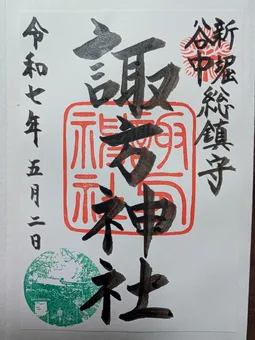 新堀
谷中
総鎮守
諏方神社
諏方
神社
令和七年五月二日